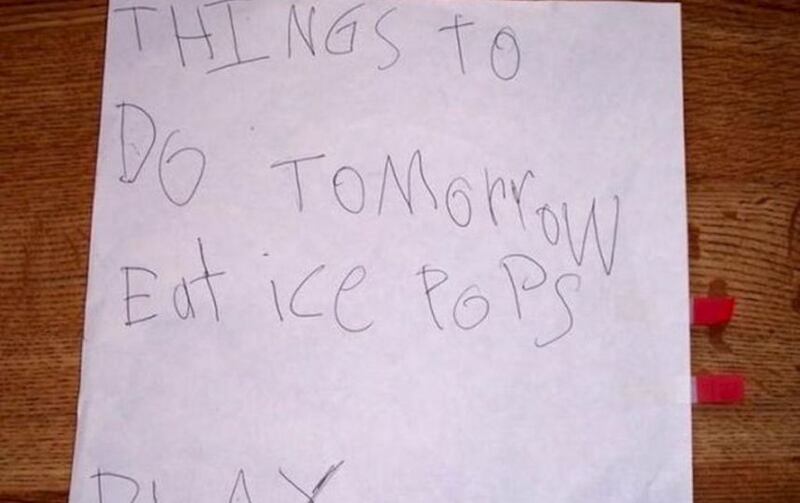 THINGS TO
DO TOMorroW
Eat ice PoPs
PLAY